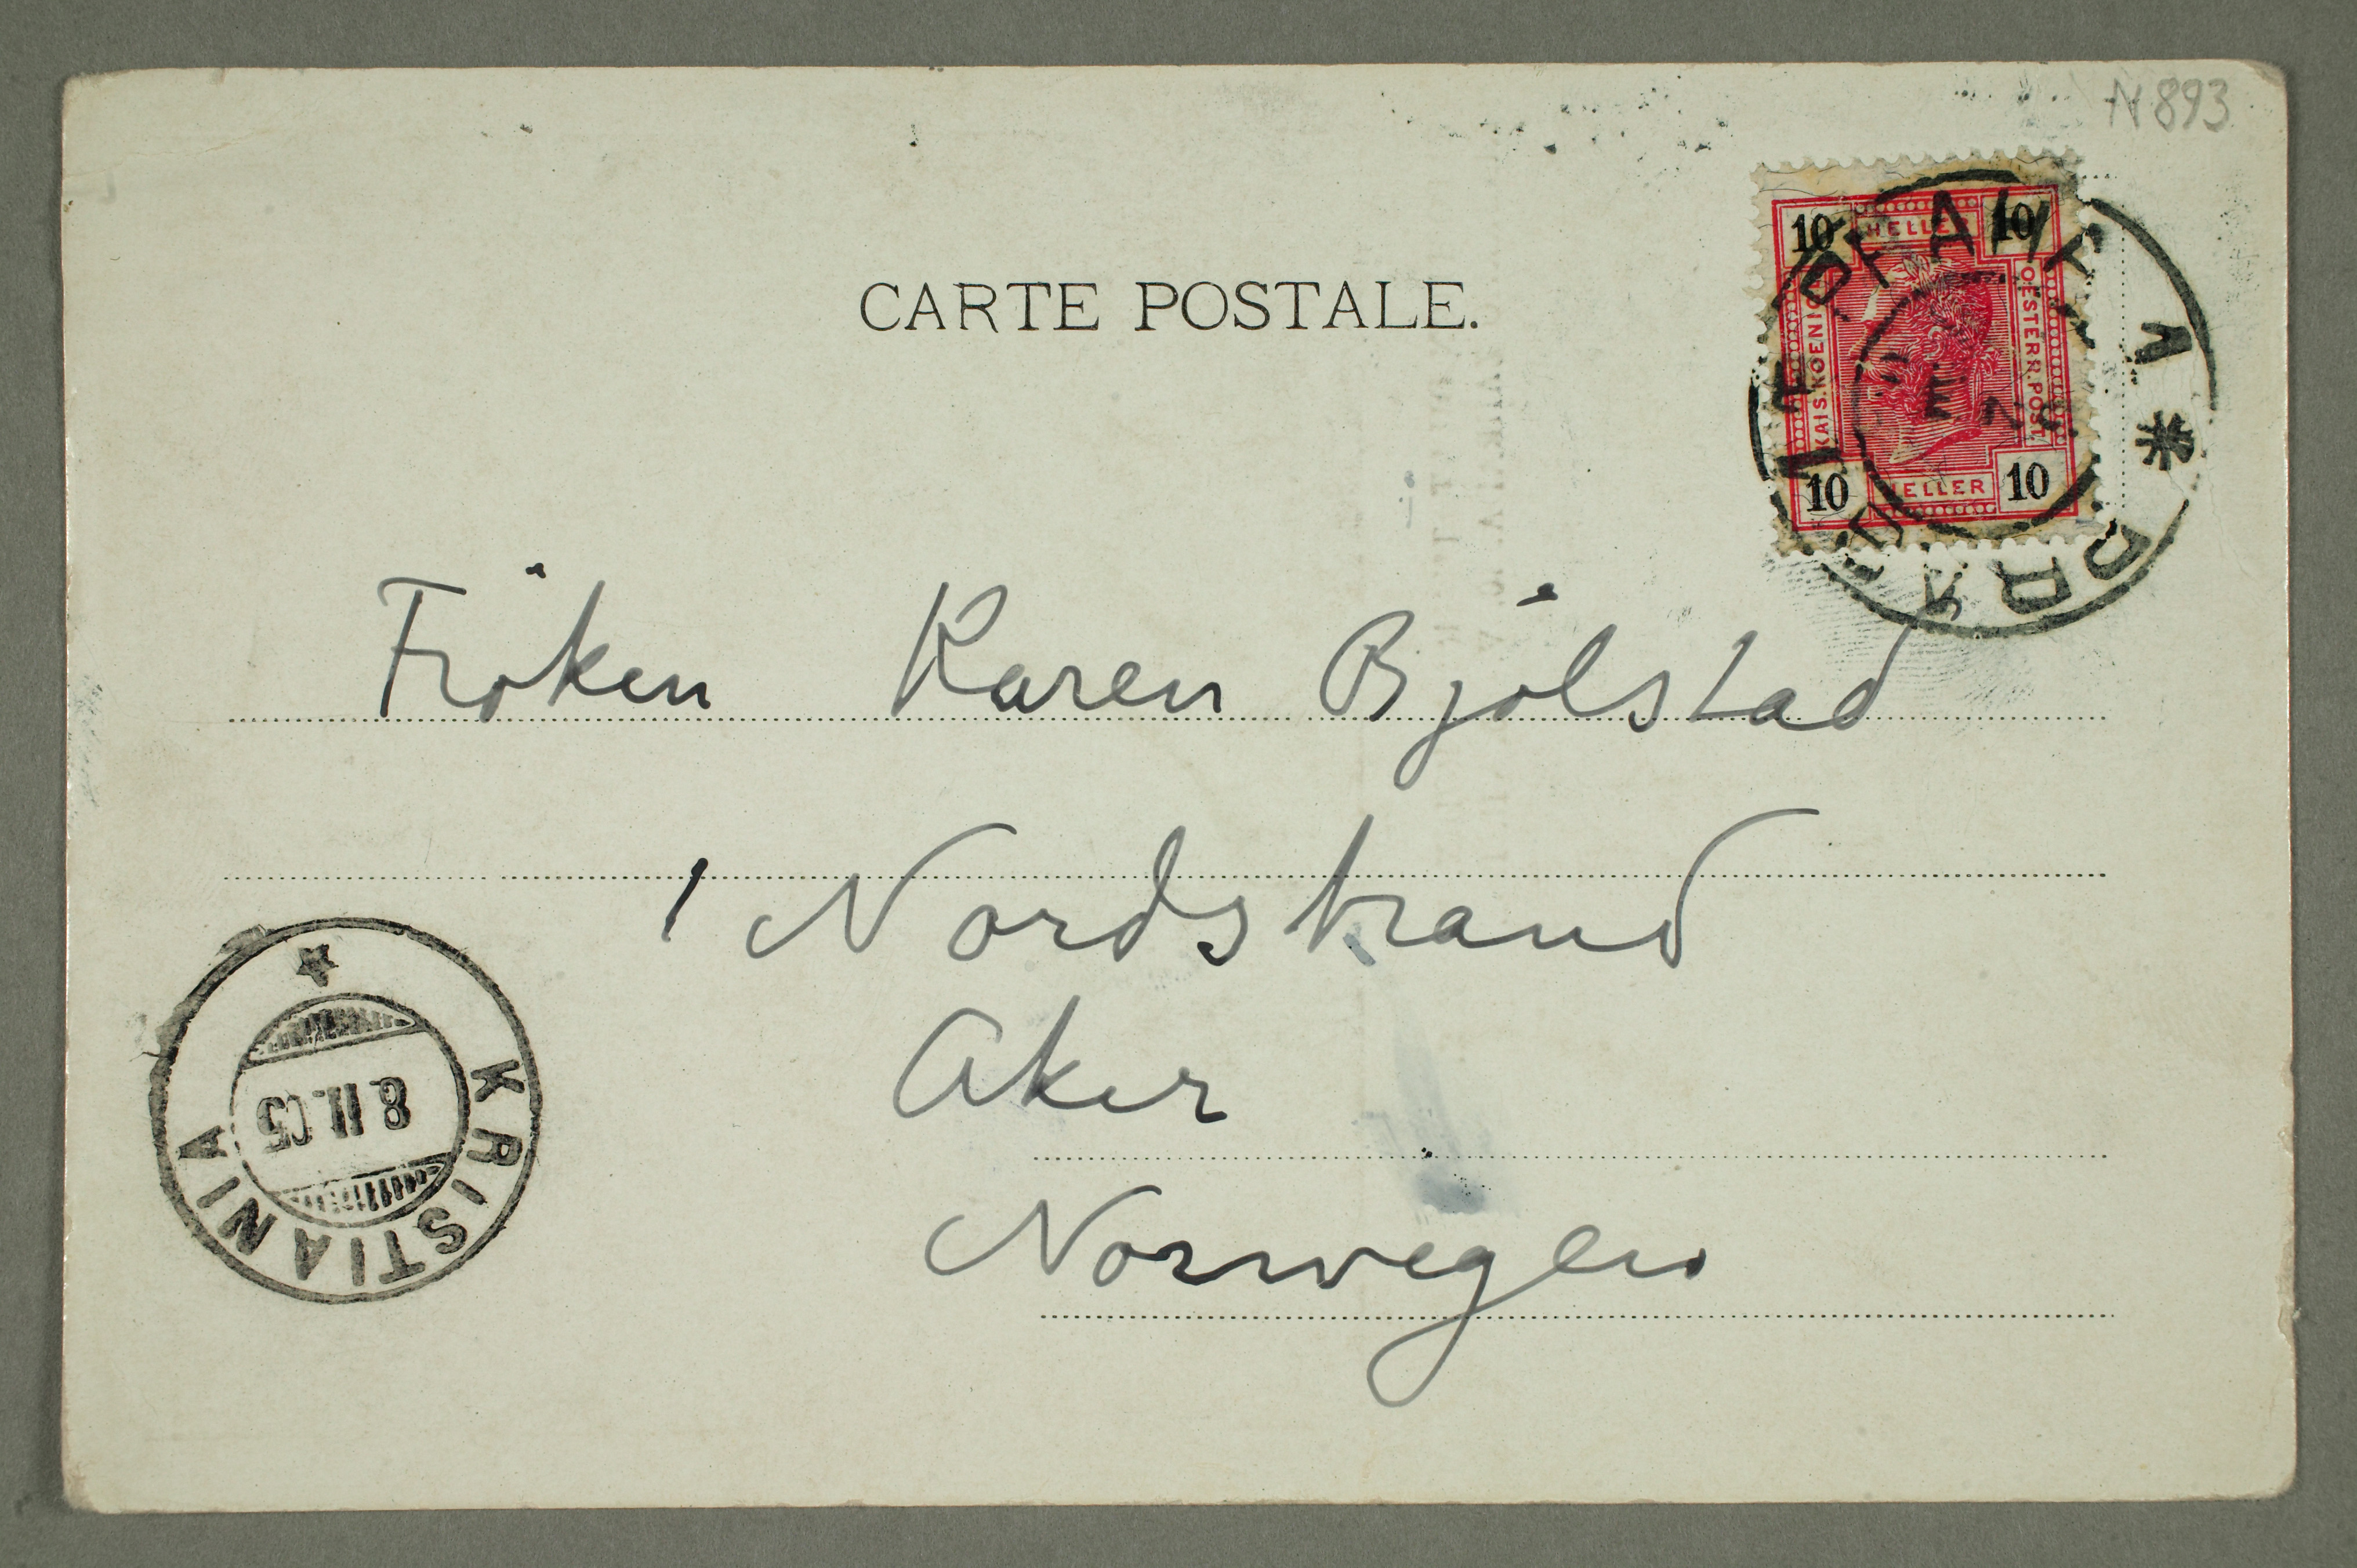 N 893
CARTE POSTALE.
10 HELLER 10
KAIS. KOENIGL.
OESTERR. POST
10 HELLER 10
Fröken Karen Bjölstad
Nordstrand
Aker
Norwegen
KRISTIANIA
8.II.05